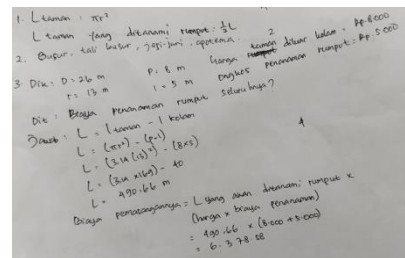 1. L taman : πr²
L taman yang ditanami rumput : ½ L
2. Busur, tali busur, jari-jari, apotema. 2
3. Dik : D = 26 m P : 8 m Harga taman diluar kolam = Rp. 8.000
r = 13 m l = 5 m ongkos penanaman rumput : Rp 5.000
Dit : Biaya penanaman rumput seluruhnya ?
Jawab : L = L taman - L kolam
L : (πr²) - (p.l)
L : (3.14 (13)²) - (8x5)
L : (3.14 x 169) - 40
L : 490.66 m
4
Biaya pemasangannya = L yang akan ditanami rumput x
(harga x biaya penanaman)
= 490.66 x (8.000 + 5.000)
= 6.378.58